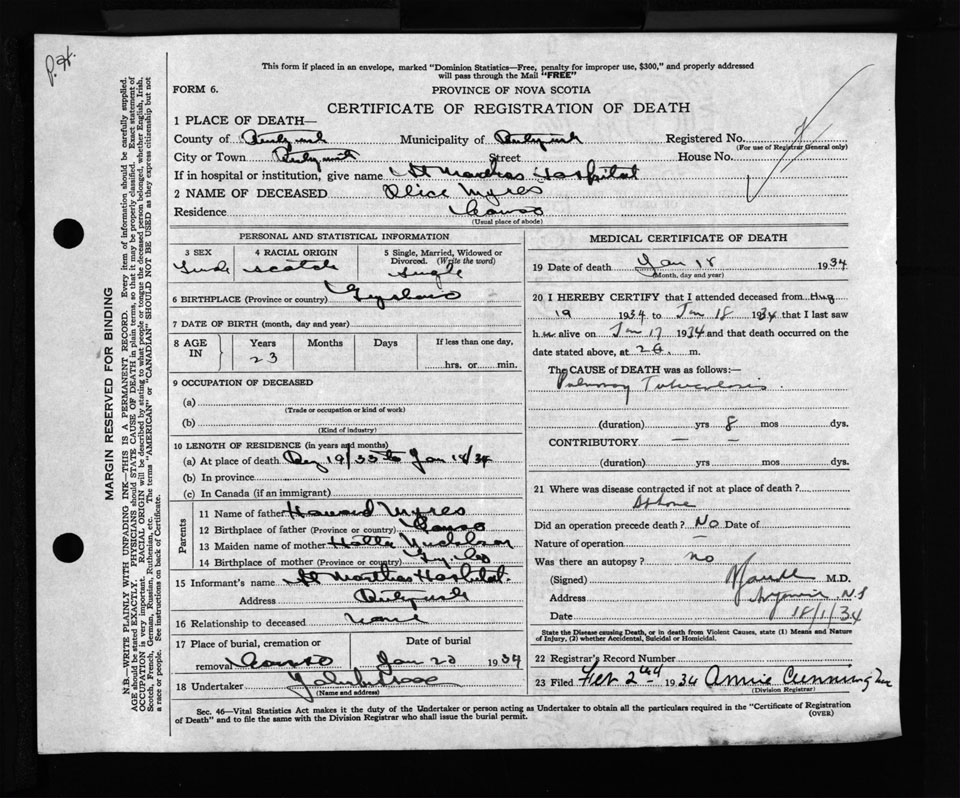 This form if placed in an envelope, marked "Dominion Statistics—Free, penalty for improper use, $300," and properly addressed
will pass through the Mail "FREE"
FORM 6.
PROVINCE OF NOVA SCOTIA
CERTIFICATE OF REGISTRATION OF DEATH
1 PLACE OF DEATH—
County of Municipality of Registered No.
(For use of Registrar General only)
City or Town Street House No.
If in hospital or institution, give name St Marthas Hospital
2 NAME OF DECEASED Alice Myres
Residence Canso
(Usual place of abode)
PERSONAL AND STATISTICAL INFORMATION
3 SEX 4 RACIAL ORIGIN 5 Single, Married, Widowed or
Divorced. (Write the word)
scotch Single
6 BIRTHPLACE (Province or country)
7 DATE OF BIRTH (month, day and year)
8 AGE IN Years Months Days If less than one day,
23 hrs. or min.
9 OCCUPATION OF DECEASED
(a)
(Trade or occupation or kind of work)
(b)
(Kind of industry)
10 LENGTH OF RESIDENCE (in years and months)
(a) At place of death 19/33 to Jan 18/34
(b) In province
(c) In Canada (if an immigrant)
Parents
11 Name of father Howard Myres
12 Birthplace of father (Province or country) Canso
13 Maiden name of mother
14 Birthplace of mother (Province or country)
15 Informant's name St Marthas Hospital.
Address
16 Relationship to deceased none
17 Place of burial, cremation or Date of burial
removal Canso Jan 20 1934
18 Undertaker
(Name and address)
MEDICAL CERTIFICATE OF DEATH
19 Date of death Jan 18 1934
(Month, day and year)
20 I HEREBY CERTIFY that I attended deceased from Aug
19 1934 to Jan 18 1934 that I last saw
h alive on Jan 17 1934 and that death occurred on
date stated above, at m.
The CAUSE of DEATH was as follows:—
Pulmonary Tuberculosis
(duration) yrs 8 mos dys.
CONTRIBUTORY — —
(duration) yrs mos dys.
21 Where was disease contracted if not at place of death?
At home
Did an operation precede death? No Date of
Nature of operation —
Was there an autopsy? no
(Signed) M.D.
Address N.S
Date 18/1/34
State the Disease causing Death, or in death from Violent Causes, state (1) Means and Nature
of Injury, (2) whether Accidental, Suicidal or Homicidal.
22 Registrar's Record Number
23 Filed Feb 2nd 1934 Annie
(Division Registrar)
Sec. 46—Vital Statistics Act makes it the duty of the Undertaker or person acting as Undertaker to obtain all the particulars required in the "Certificate of Registration
of Death" and to file the same with the Division Registrar who shall issue the burial permit.
(OVER)
MARGIN RESERVED FOR BINDING
N.B.—WRITE PLAINLY WITH UNFADING INK—THIS IS A PERMANENT RECORD. Every item of information should be carefully supplied.
AGE should be stated EXACTLY. PHYSICIANS should STATE CAUSE OF DEATH in plain terms, so that it may be properly classified. Exact statement of
OCCUPATION is very important. RACIAL ORIGIN will be described by stating to what people or tongue the deceased person belonged, whether English, Irish,
Scotch, French, German, Russian, Ruthenian, etc. The terms "AMERICAN" or "CANADIAN" SHOULD NOT BE USED as they express citizenship but not
a race or people. See instructions on back of Certificate.